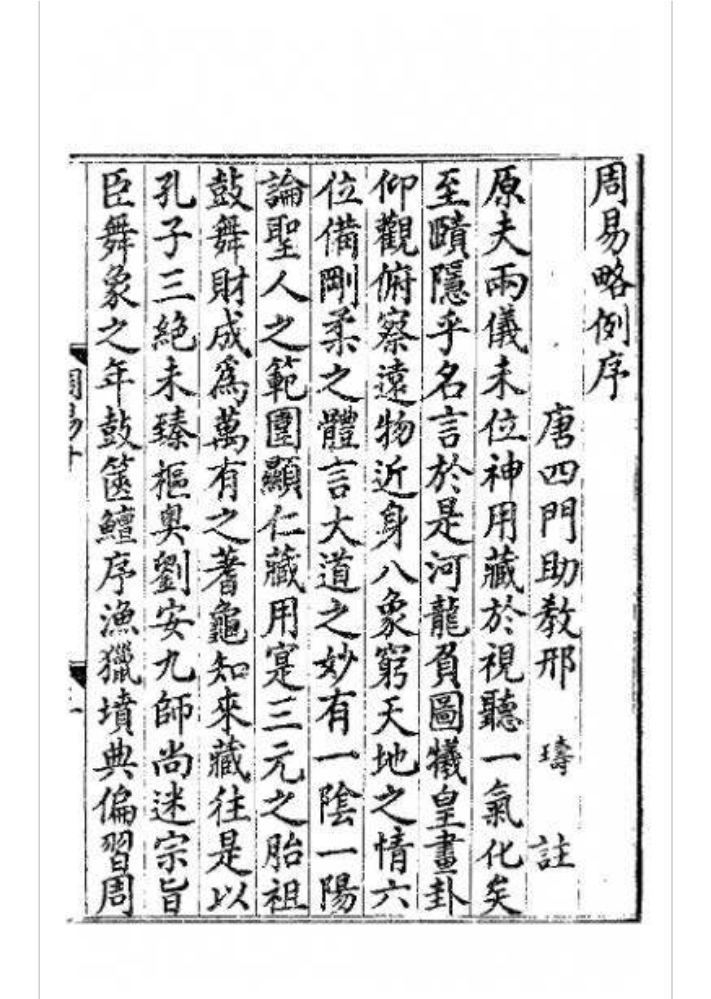 周易略例序
唐四門助教邢 璹 註
原夫兩儀未位神用藏於視聽一氣化矣
至賾隱乎名言於是河龍負圖犧皇畫卦
仰觀俯察遠物近身八象窮天地之情六
位備剛柔之體言大道之妙有一陰一陽
論聖人之範圍顯仁藏用寔三元之胎祖
鼓舞財成爲萬有之蓍龜知來藏往是以
孔子三絶未臻樞奥劉安九師尚迷宗旨
臣舞象之年鼓篋鱣序漁獵墳典偏習周
周易十